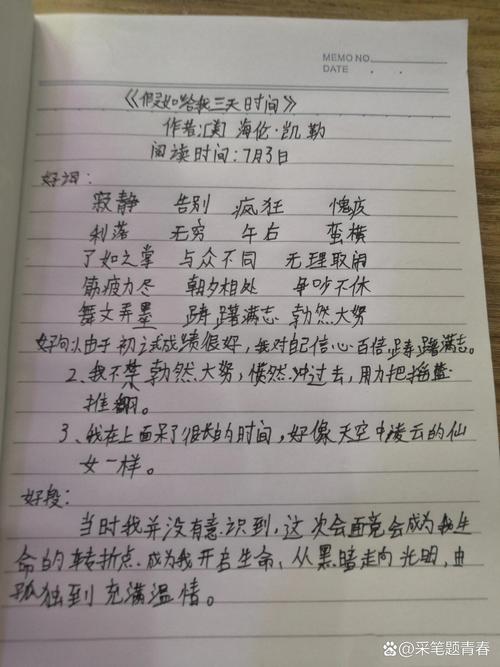 MEMO NO.
DATE . .
《假如给我三天时间》
作者:[美] 海伦·凯勒
阅读时间:7月3日
好词:
寂静 告别 疯狂 愧疚
利落 无穷 午后 蛮横
了如之掌 与众不同 无理取闹
筋疲力尽 朝夕相处 争吵不休
舞文弄墨 踌躇满志 勃然大努
好句1.由于初试成绩很好,我对自己信心百信,踌躇满志。
2、我不禁勃然大努,愤然冲过去,用力把摇篮
推翻。
3、我在上面呆了很长的时间,好像天空中凌云的仙
女一样。
好段:
当时我并没有意识到,这次会面竟会成为我生
命的转折点.成为我开启生命,从黑暗走向光明,由
孤独到充满温情。
采笔题青春